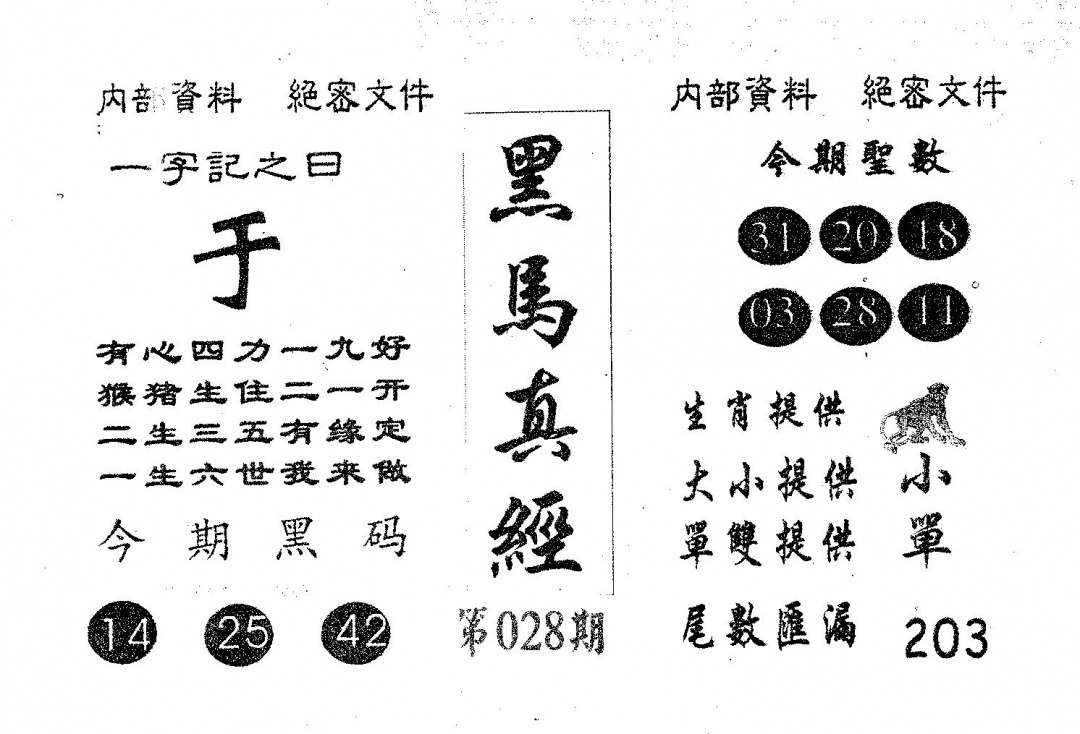 内部資料 絕密文件
一字記之曰
于
有心四力一九好
猴猪生住二一开
二生三五有缘定
一生六世我来做
今期黑码
14 25 42
黑馬真經
第028期
内部資料 絕密文件
今期聖數
31 20 18
03 28 11
生肖提供
大小提供 小
單雙提供 單
尾數匯漏 203